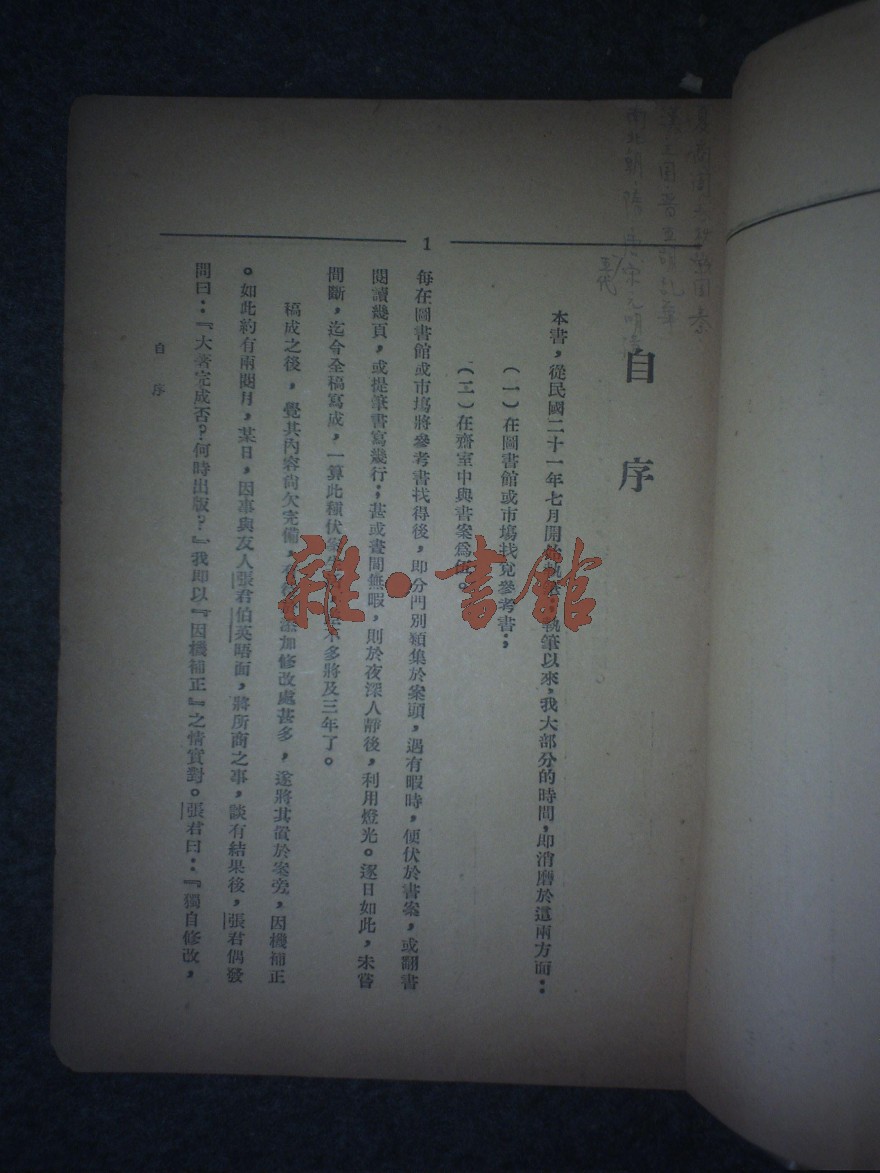 1
自序
本書，從民國二十一年七月開始執筆以來，我大部分的時間，即消磨於這兩方面：
（一）在圖書館或市塲找兌參考書；
（二）在齋室中與書案爲伍。
每在圖書館或市塲將參考書找得後，即分門別類集於案頭，遇有暇時，便伏於書案，或翻書
閱讀幾頁，或提筆書寫幾行；甚或晝間無暇，則於夜深人靜後，利用燈光。逐日如此，未嘗
間斷，迄今全稿寫成，一算此種伏案 不多將及三年了。
稿成之後，覺其內容尙欠完備， 加修改處甚多，遂將其置於案旁，因機補正
。如此約有兩閱月，某日，因事與友人張君伯英晤面，將所商之事，談有結果後，張君偶發
問曰：『大著完成否？何時出版？』我即以『因機補正』之情實對。張君曰：『獨自修改，
自序
雜·書館
五代